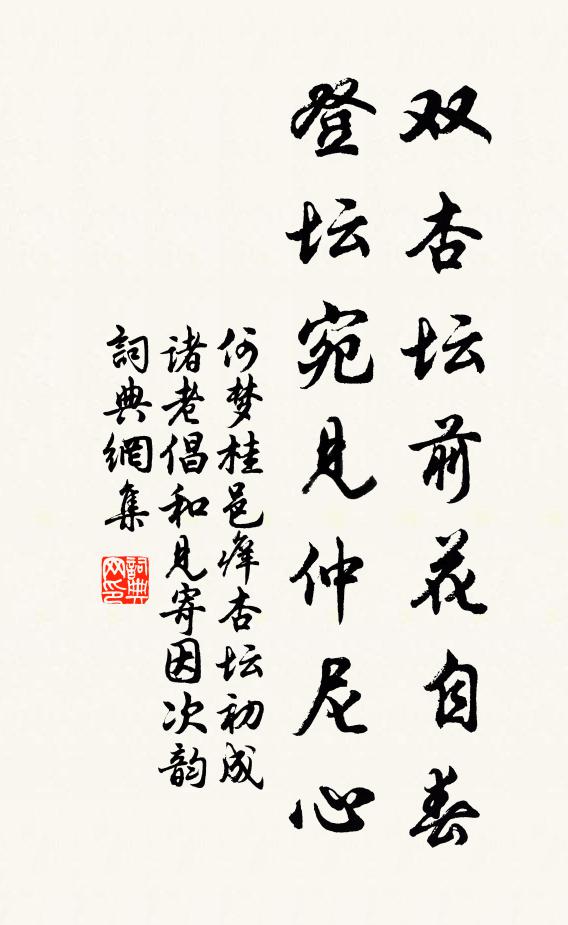 双杏坛前花自春
登坛宛见仲尼心
何梦桂邑庠杏坛初成
诸老倡和见寄因次韵
詞典網集
詞典
网印